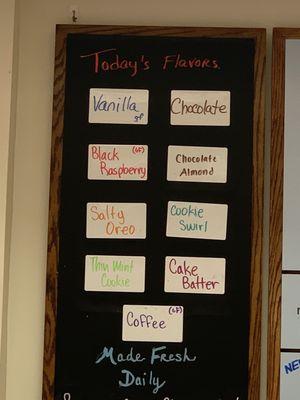 Today's Flavors
Vanilla
gf
Chocolate
Black (GF)
Raspberry
Chocolate
Almond
Salty
Oreo
Cookie
Swirl
Thin Mint
Cookie
Cake
Batter
(GF)
Coffee
Made Fresh
Daily